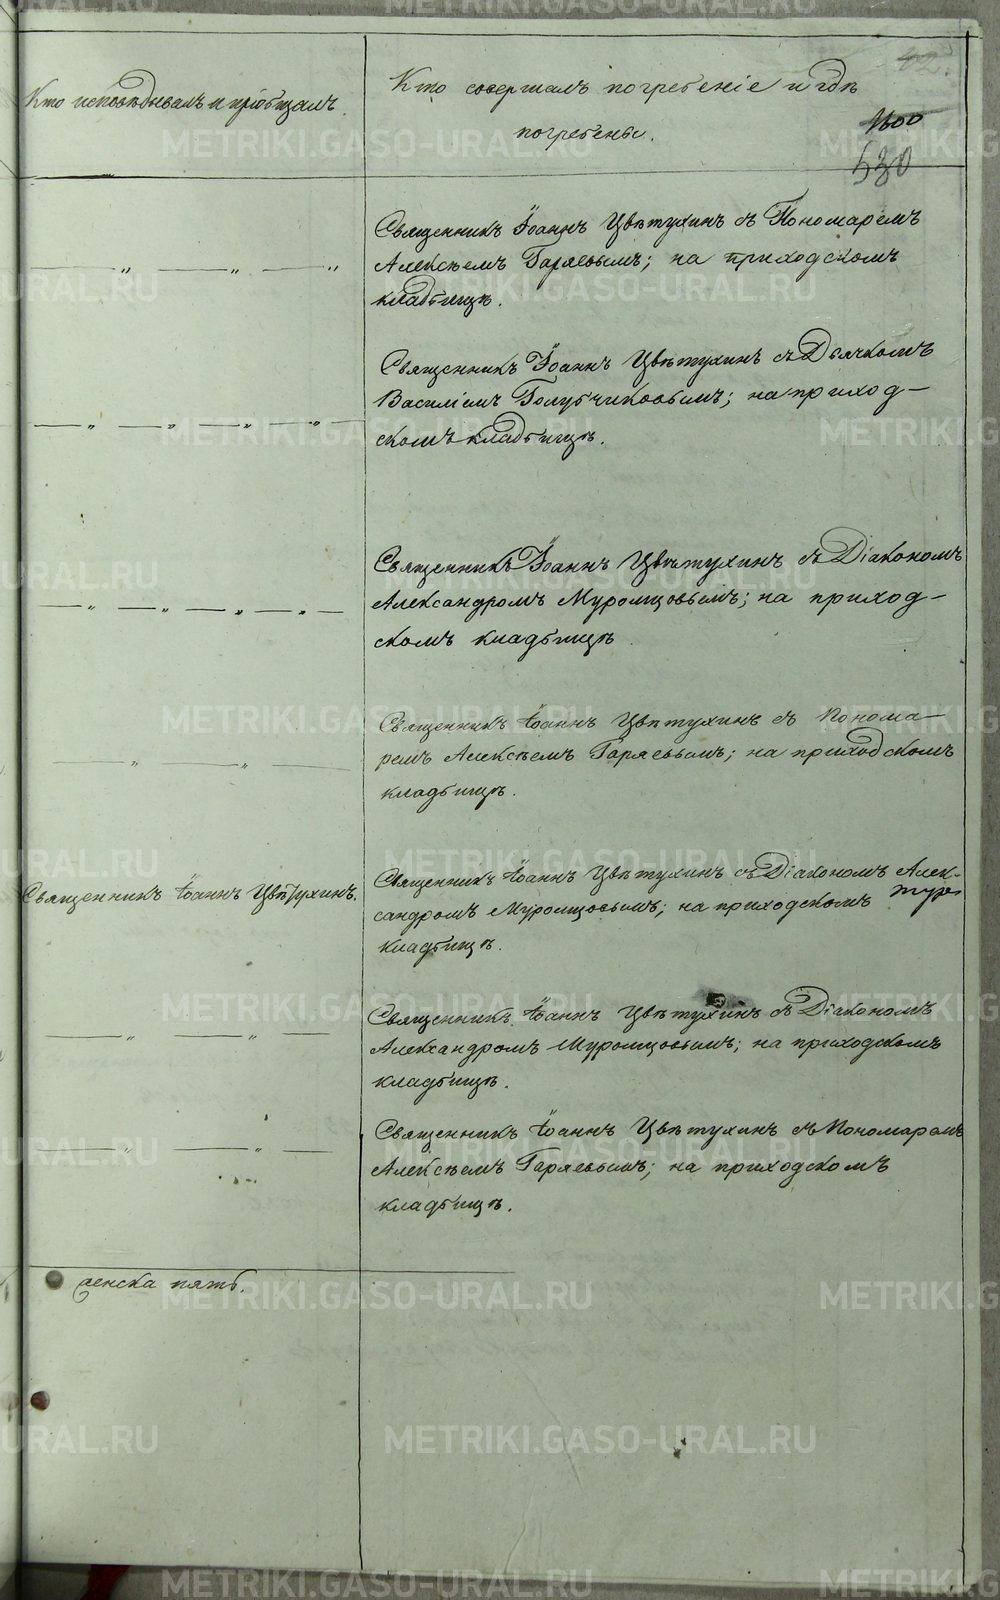 42.
Кто исповѣдывалъ и пріобщалъ.
Кто совершалъ погребеніе и гдѣ
погребены.
1600
530
Священникъ Іоаннъ Цвѣтухинъ съ Пономаремъ
Алексѣемъ Гаряевымъ; на приходскомъ
кладбищѣ.
Священникъ Іоаннъ Цвѣтухинъ съ Дьячкомъ
Василіемъ Голубчиковымъ; на приход-
скомъ кладбищѣ.
Священникъ Іоаннъ Цвѣтухинъ съ Діакономъ
Александромъ Муромцовымъ; на приход-
скомъ кладбищѣ
Священникъ Іоаннъ Цвѣтухинъ съ Понома-
ремъ Алексѣемъ Гаряевымъ; на приходскомъ
кладбищѣ.
Священникъ Іоаннъ Цвѣтухинъ.
Священникъ Іоаннъ Цвѣтухинъ съ Діакономъ Алек-
сандромъ Муромцовымъ; на приходскомъ
кладбищѣ.
Священникъ Іоаннъ Цвѣтухинъ съ Діакономъ
Александромъ Муромцовымъ; на приходскомъ
кладбищѣ.
Священникъ Іоаннъ Цвѣтухинъ съ Пономаремъ
Алексѣемъ Гаряевымъ; на приходскомъ
кладбищѣ.
женска пять.
METRIKI.GASO-URAL.RU